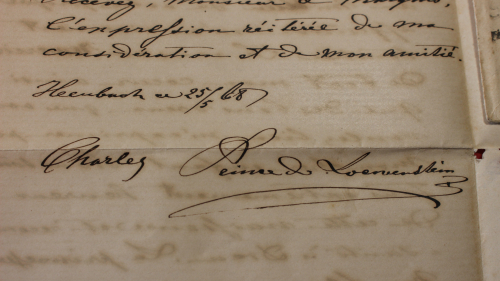 Recevez, Monsieur le Marquis,
l'expression réitérée de ma
considération et de mon amitié.
Heubach ce 25/5 68
Charles Prince de Loewenstein